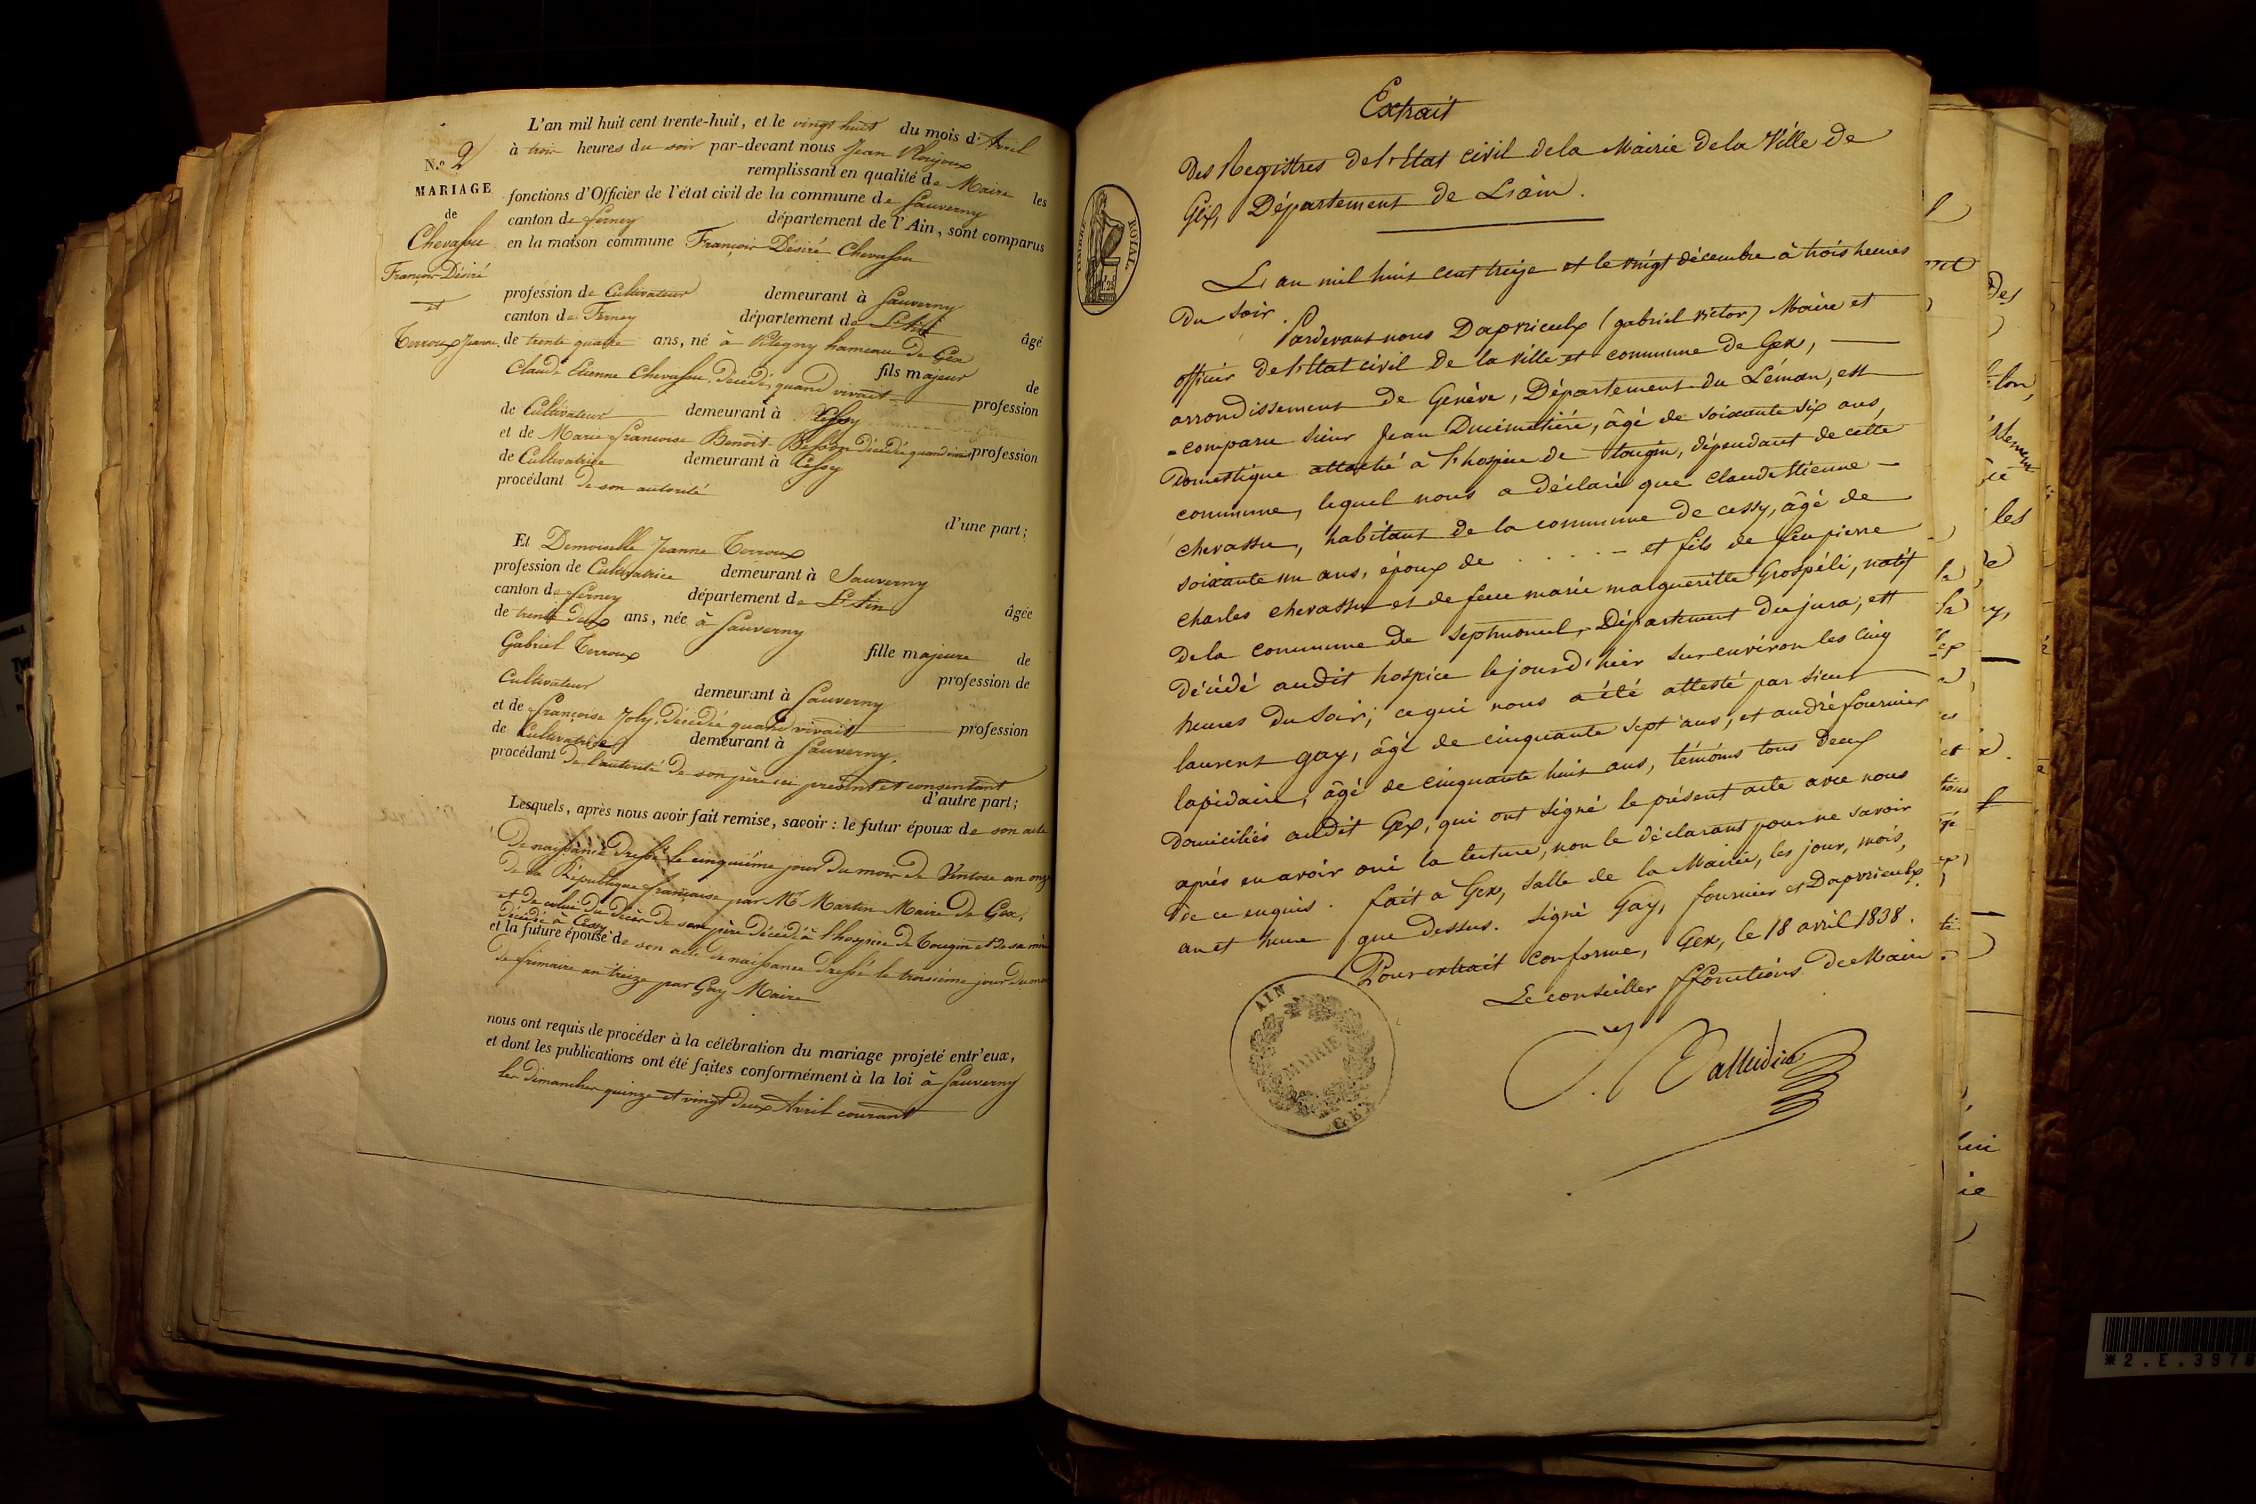 N.o 2
MARIAGE
de
Chevassu
François Désiré
et
Terroux Jeanne.
L'an mil huit cent trente-huit, et le vingt huit du mois d'Avril
à trois heures du soir par-devant nous Jean
remplissant en qualité de Maire les
fonctions d'Officier de l'état civil de la commune de Sauverny
canton de Ferney département de l'Ain, sont comparus
en la maison commune François Désiré Chevassu
profession de Cultivateur demeurant à Sauverny
canton de Ferney département de L'Ain âgé
de trente quatre ans, né à Pitegny hameau de Gex
fils majeur de
Claude Etienne Chevassu, décédé, quand vivait profession
de Cultivateur demeurant à Cessy
et de Marie françoise Benoit-Bisson décédée quand vivait profession
de Cultivatrice demeurant à Cessy
procédant de son autorité
d'une part;
Et Demoiselle Jeanne Terroux
profession de Cultivatrice demeurant à Sauverny
canton de Ferney département de L'Ain âgée
de trente deux ans, née à Sauverny
fille majeure de
Gabriel Terroux profession de
Cultivateur demeurant à Sauverny
et de françoise Joly, décédée quand vivait profession
de Cultivatrice demeurant à Sauverny.
procédant de l'autorité de son père ici présent et consentant
d'autre part;
Lesquels, après nous avoir fait remise, savoir : le futur époux de son acte
de naissance dressé le cinquième jour du mois de Ventose an onze
de la République française par Mr Martin Maire de Gex,
et de celui du décès de son père décédé à l'hospice de Tougin et de sa mère
décédée à Cessy
et la future épouse de son acte de naissance dressé le troisième jour du mois
de frimaire an treize par Gay Maire
nous ont requis de procéder à la célébration du mariage projeté entr'eux,
et dont les publications ont été faites conformément à la loi à Sauverny
les dimanches quinze et vingt deux Avril courant
TIMBRE ROYAL
Extrait
des Registres de l'Etat civil de la Mairie de la Ville de
Gex, Département de L'ain.
L'an mil huit cent treize et le vingt décembre à trois heures
du soir.
Pardevant nous Dapvrieulx (gabriel victor) Maire et
officier de l'Etat civil de la ville et commune de Gex,
arrondissement de Genève, Département du Léman, est
comparu sieur Jean Ducimetière, âgé de soixante six ans,
Domestique attaché à l'hospice de tougin, dépendant de cette
commune, lequel nous a déclaré que claude Etienne
chevassu, habitant de la commune de cessy, âgé de
soixante un ans, époux de . . . . et fils de feu pierre
charles chevassu et de feue marie margueritte Grospéli, natif
de la commune de septmoncel, Département du jura, est
décédé audit hospice le jourd'hier sur environ les cinq
heures du soir; ce qui nous a été attesté par sieur
laurent gay, âgé de cinquante sept ans, et andré fournier
lapidaire, âgé de cinquante huit ans, témoins tous deux
domiciliés audit Gex, qui ont signé le présent acte avec nous
après en avoir ouï la lecture, non le déclarant pour ne savoir
de ce enquis. fait à Gex, salle de la Mairie, les jour, mois,
an et heure que dessus. signé Gay, fournier et Dapvrieulx.
Pour extrait conforme, Gex, le 18 avril 1838.
Le conseiller ffonctions de Maire
AIN
MAIRIE
GEX
*2.E.3978